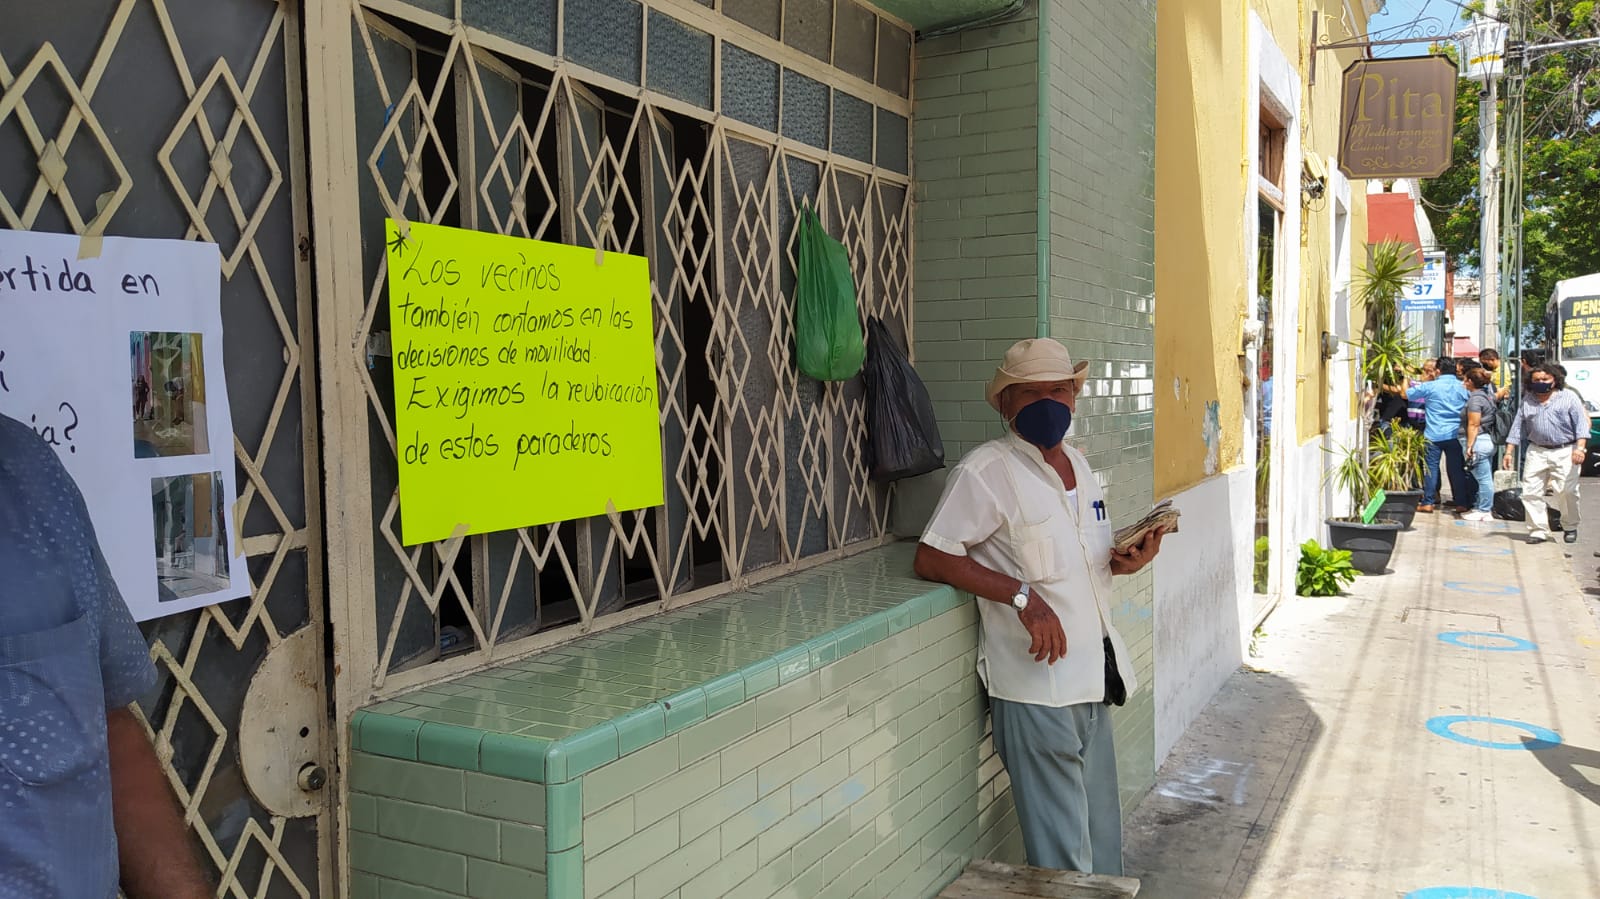 ertida en
ia?
*Los vecinos
también contamos en las
decisiones de movilidad.
Exigimos la reubicación
de estos paraderos.
Pita
Mediterranean
Cuisine & Bar
37
PENS